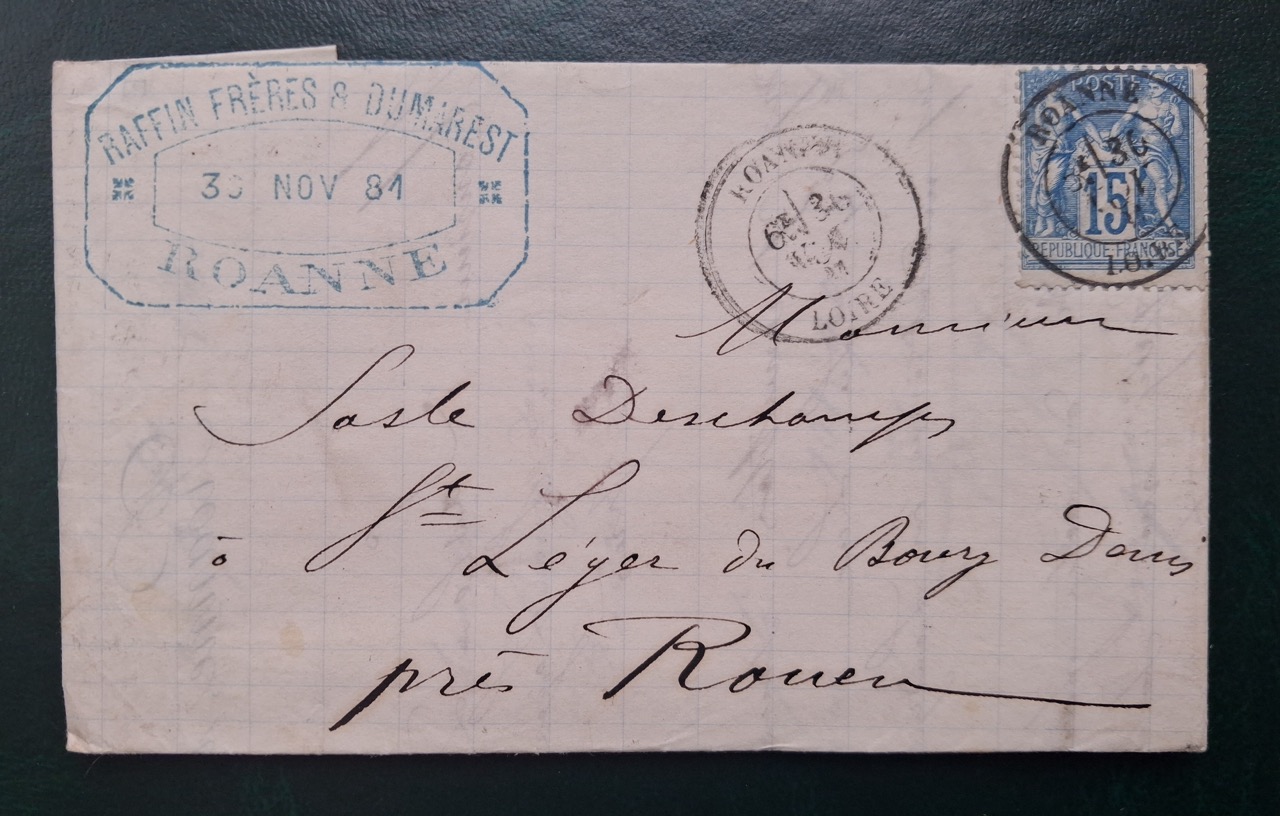 RAFFIN FRÈRES & DUMAREST
30 NOV 81
ROANNE
ROANNE
6E 30
NOV
81
LOIRE
POSTE
ROANNE
6E 30
15
REPUBLIQUE FRANÇAISE
LOIRE
Monsieur
Sasle Deschamps
à St Léger du Bourg Denis
près Rouen